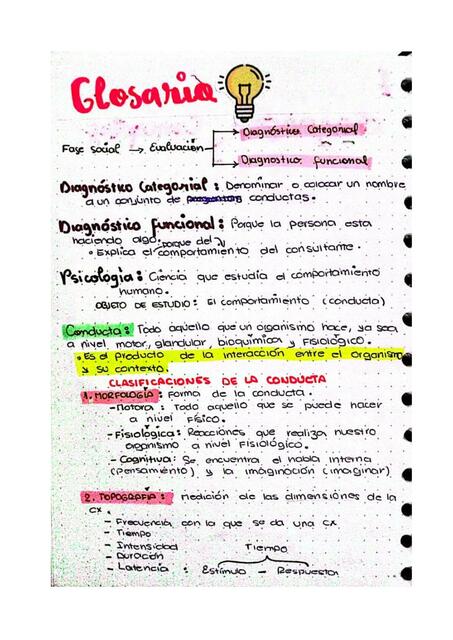 Glosario
Diagnóstico Categorial
Fase social → Evaluación
Diagnostico funcional
Diagnóstico Categorial: Denominar o colocar un nombre
a un conjunto de conductas.
Diagnóstico funcional: Porque la persona esta
haciendo algo. porque del
• Explica el comportamiento del consultante.
Psicologia: Ciencia que estudia el comportamiento
humano.
OBJETO DE ESTUDIO: El comportamiento (conducta)
Conducta: Todo aquello que un organismo hace, ya sea
a nivel motor, glandular, bioquimico y fisiologico.
• Es el producto de la interacción entre el organismo
y su contexto.
CLASIFICACIONES DE LA CONDUCTA
1. MORFOLOGÍA: Forma de la conducta.
- Motora: Todo aquello que se puede hacer
a nivel físico.
- Fisiológica: Reacciones que realiza nuestro
organismo a nivel fisiológico.
- Cognitiva: Se encuentra el habla interna
(pensamiento) y la imaginación (imaginar)
2. TOPOGRAFIA: Medición de las dimensiones de la
cx.
- Frecuencia con la que se da una cx
- Tiempo
- Intensidad
Tiempo
- Duración
- Latencia: Estimulo - Respuesta